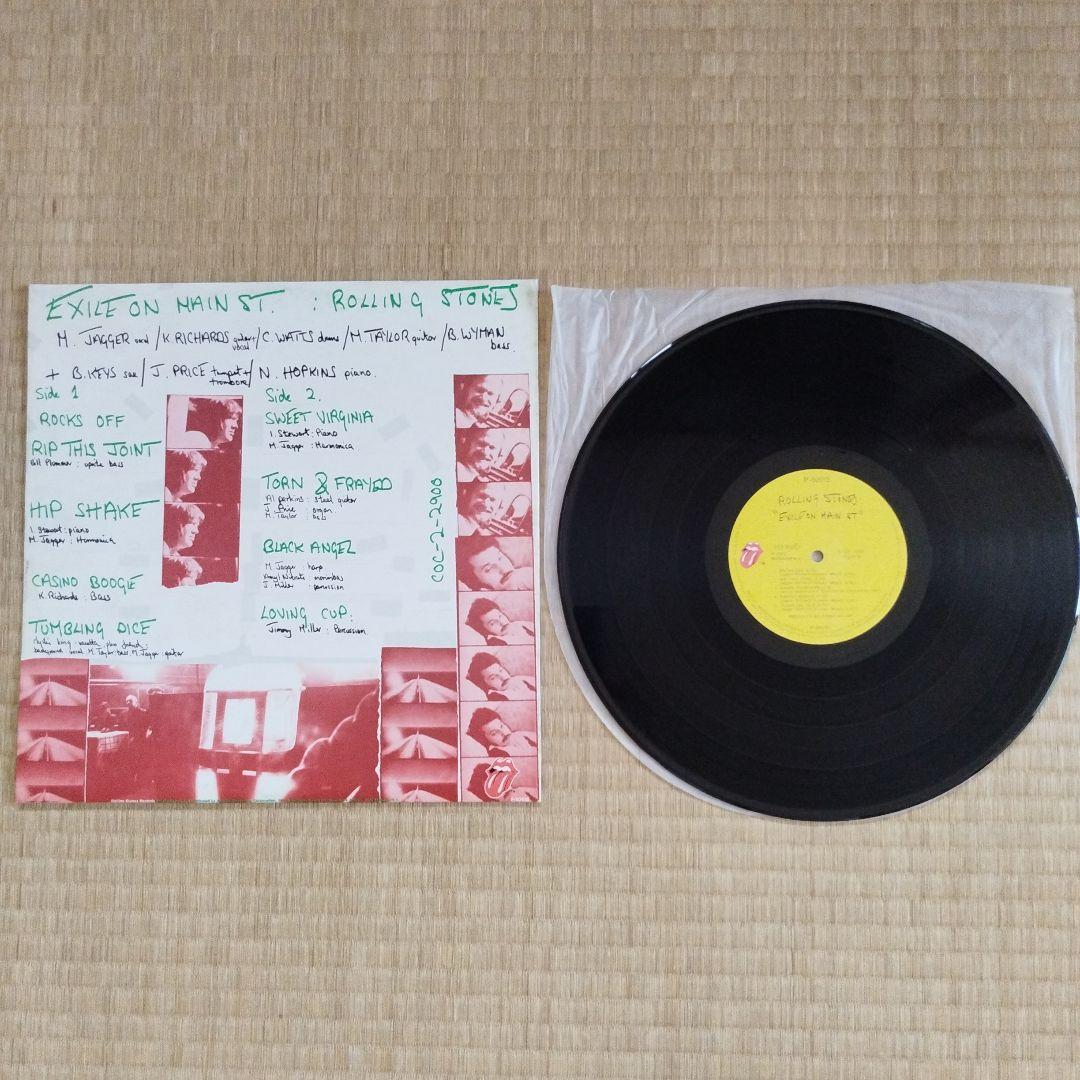 EXILE ON MAIN ST. : ROLLING STONES
M. JAGGER vocal / K. RICHARDS guitar vocal / C. WATTS drums / M. TAYLOR guitar / B. WYMAN bass.
+ B. KEYS sax / J. PRICE trumpet + trombone / N. HOPKINS piano.
Side 1
ROCKS OFF
RIP THIS JOINT
Bill Plummer : uprite bass
HIP SHAKE
I. Stewart : piano
M. Jagger : Harmonica
CASINO BOOGIE
K. Richards : Bass
TUMBLING DICE
background vocal M. Taylor : bass. M. Jagger : guitar
Side 2.
SWEET VIRGINIA
I. Stewart : Piano
M. Jagger : Harmonica
TORN & FRAYED
Al perkins : steel guitar
J. Price : organ
M. Taylor : bass
BLACK ANGEL
M. Jagger : harp
Amyl Nitrate : marimbas
J. Miller : percussion
LOVING CUP :
Jimmy Miller : Percussion
COC-2-2900
ROLLING STONES
"EXILE ON MAIN ST"